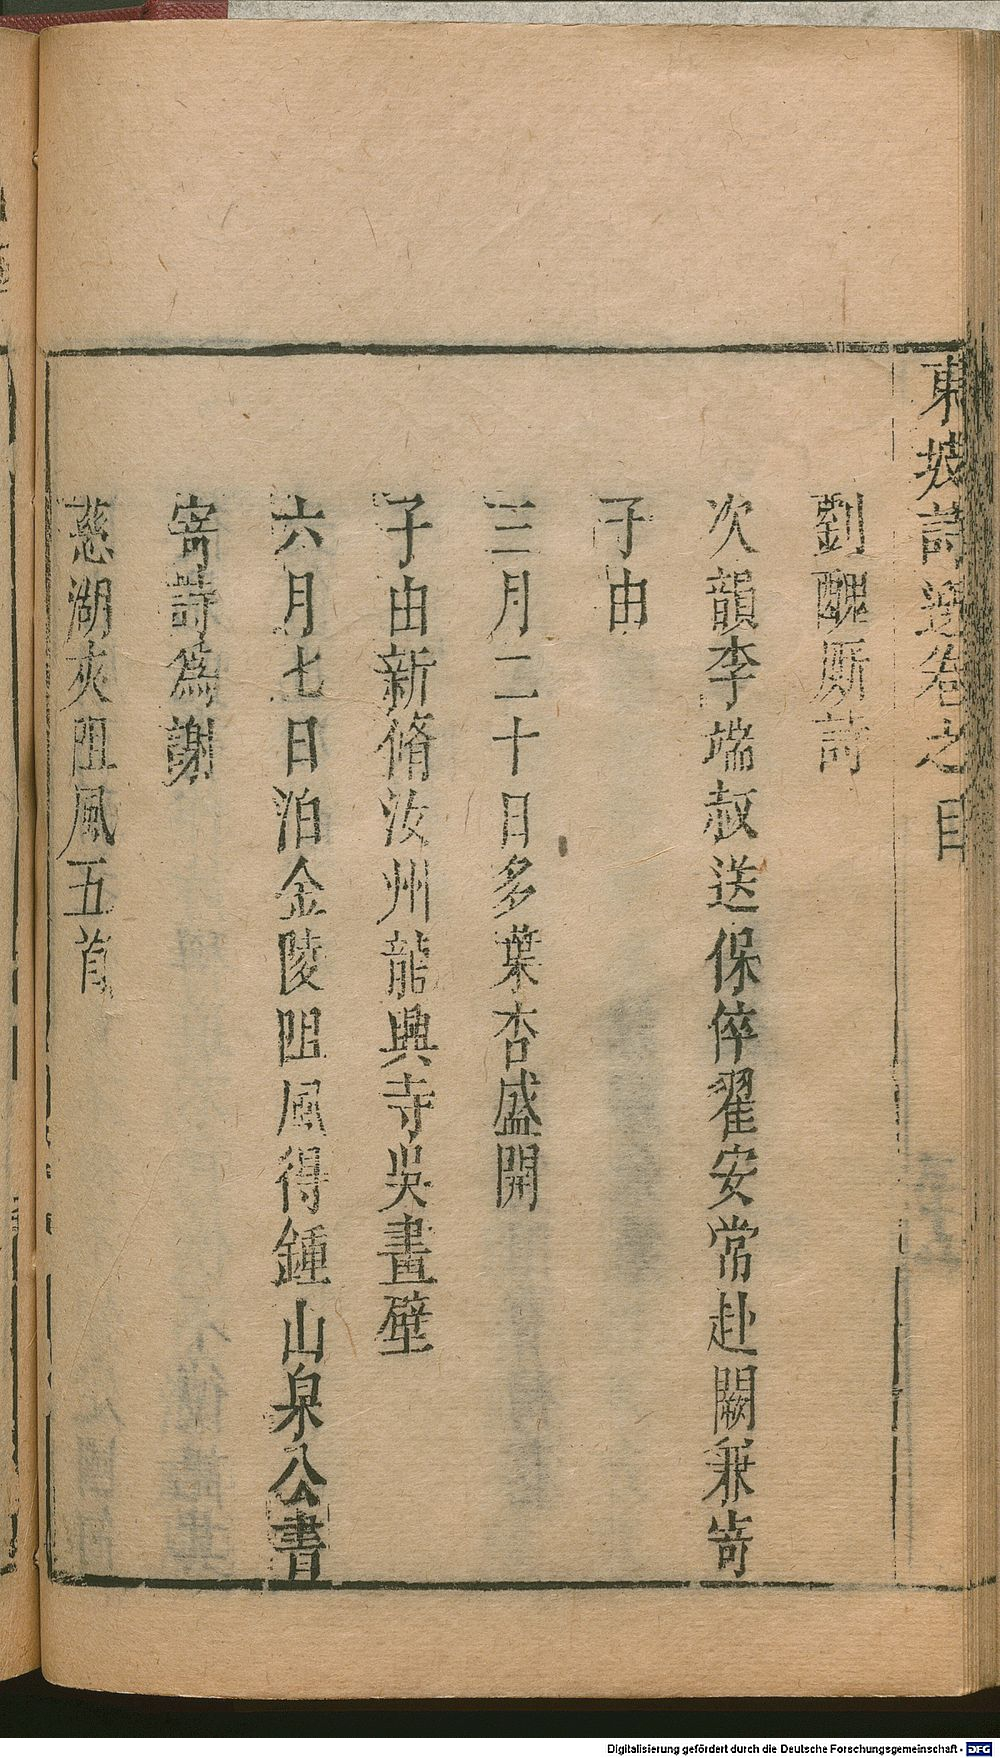 東坡詩選卷之目
劉醜厮詩
次韻李端叔送保倅翟安常赴闕兼寄
子由
三月二十日多葉杏盛開
子由新脩汝州龍興寺吳畫壁
六月七日泊金陵阻風得鍾山泉公書
寄詩為謝
慈湖夾阻風五首
Digitalisierung gefördert durch die Deutsche Forschungsgemeinschaft - DFG